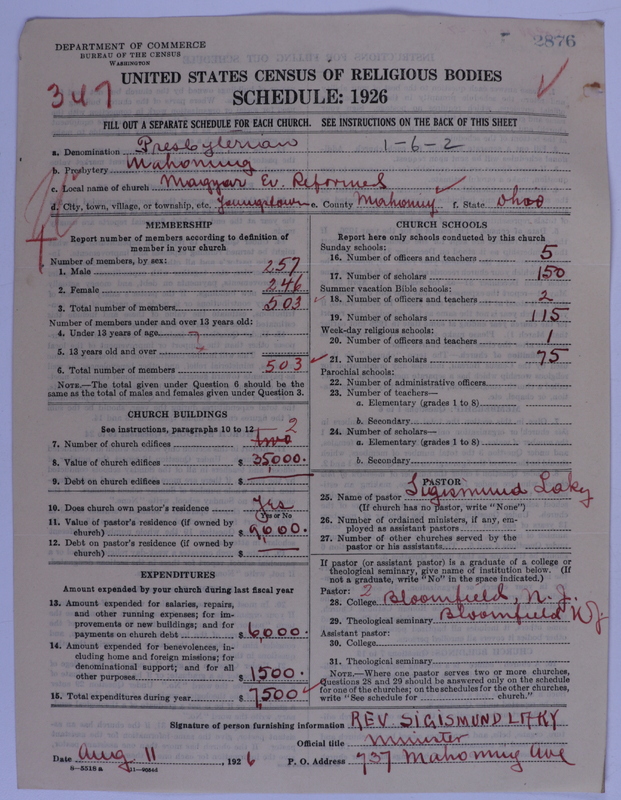 DEPARTMENT OF COMMERCE
BUREAU OF THE CENSUS
WASHINGTON
2876
347
UNITED STATES CENSUS OF RELIGIOUS BODIES
SCHEDULE: 1926
FILL OUT A SEPARATE SCHEDULE FOR EACH CHURCH. SEE INSTRUCTIONS ON THE BACK OF THIS SHEET
a. Denomination Presbyterian 1-6-2
b. Presbytery Mahoning
c. Local name of church Magyar Ev. Reformed
d. City, town, village, or township, etc. Youngstown e. County Mahoning f. State Ohio
MEMBERSHIP
Report number of members according to definition of member in your church
Number of members, by sex:
1. Male 257
2. Female 246
3. Total number of members 503
Number of members under and over 13 years old:
4. Under 13 years of age
5. 13 years old and over
6. Total number of members 503
NOTE.—The total given under Question 6 should be the same as the total of males and females given under Question 3.
CHURCH BUILDINGS
See instructions, paragraphs 10 to 12
7. Number of church edifices two 2
8. Value of church edifices $ 35,000.
9. Debt on church edifices $
10. Does church own pastor's residence Yes
Yes or No
11. Value of pastor's residence (if owned by church) $ 9,000.
12. Debt on pastor's residence (if owned by church) $
EXPENDITURES
Amount expended by your church during last fiscal year
13. Amount expended for salaries, repairs, and other running expenses; for improvements or new buildings; and for payments on church debt $ 6,000.
14. Amount expended for benevolences, including home and foreign missions; for denominational support; and for all other purposes $ 1500.
15. Total expenditures during year $ 7,500
CHURCH SCHOOLS
Report here only schools conducted by this church
Sunday schools:
16. Number of officers and teachers 5
17. Number of scholars 150
Summer vacation Bible schools:
18. Number of officers and teachers 2
19. Number of scholars 115
Week-day religious schools:
20. Number of officers and teachers 1
21. Number of scholars 75
Parochial schools:
22. Number of administrative officers
23. Number of teachers—
a. Elementary (grades 1 to 8)
b. Secondary
24. Number of scholars—
a. Elementary (grades 1 to 8)
b. Secondary
PASTOR
25. Name of pastor Sigismund Laky
(If church has no pastor, write "None")
26. Number of ordained ministers, if any, employed as assistant pastors
27. Number of other churches served by the pastor or his assistants
If pastor (or assistant pastor) is a graduate of a college or theological seminary, give name of institution below. (If not a graduate, write "No" in the space indicated.)
Pastor: 2
28. College Bloomfield, N.J.
29. Theological seminary Bloomfield NJ
Assistant pastor:
30. College
31. Theological seminary
NOTE.—Where one pastor serves two or more churches, Questions 28 and 29 should be answered only on the schedule for one of the churches; on the schedules for the other churches, write "See schedule for church."
Signature of person furnishing information REV. SIGISMUND LAKY
Official title Minister
Date Aug 11 1926 P. O. Address 737 Mahoning Ave
8—5518 a